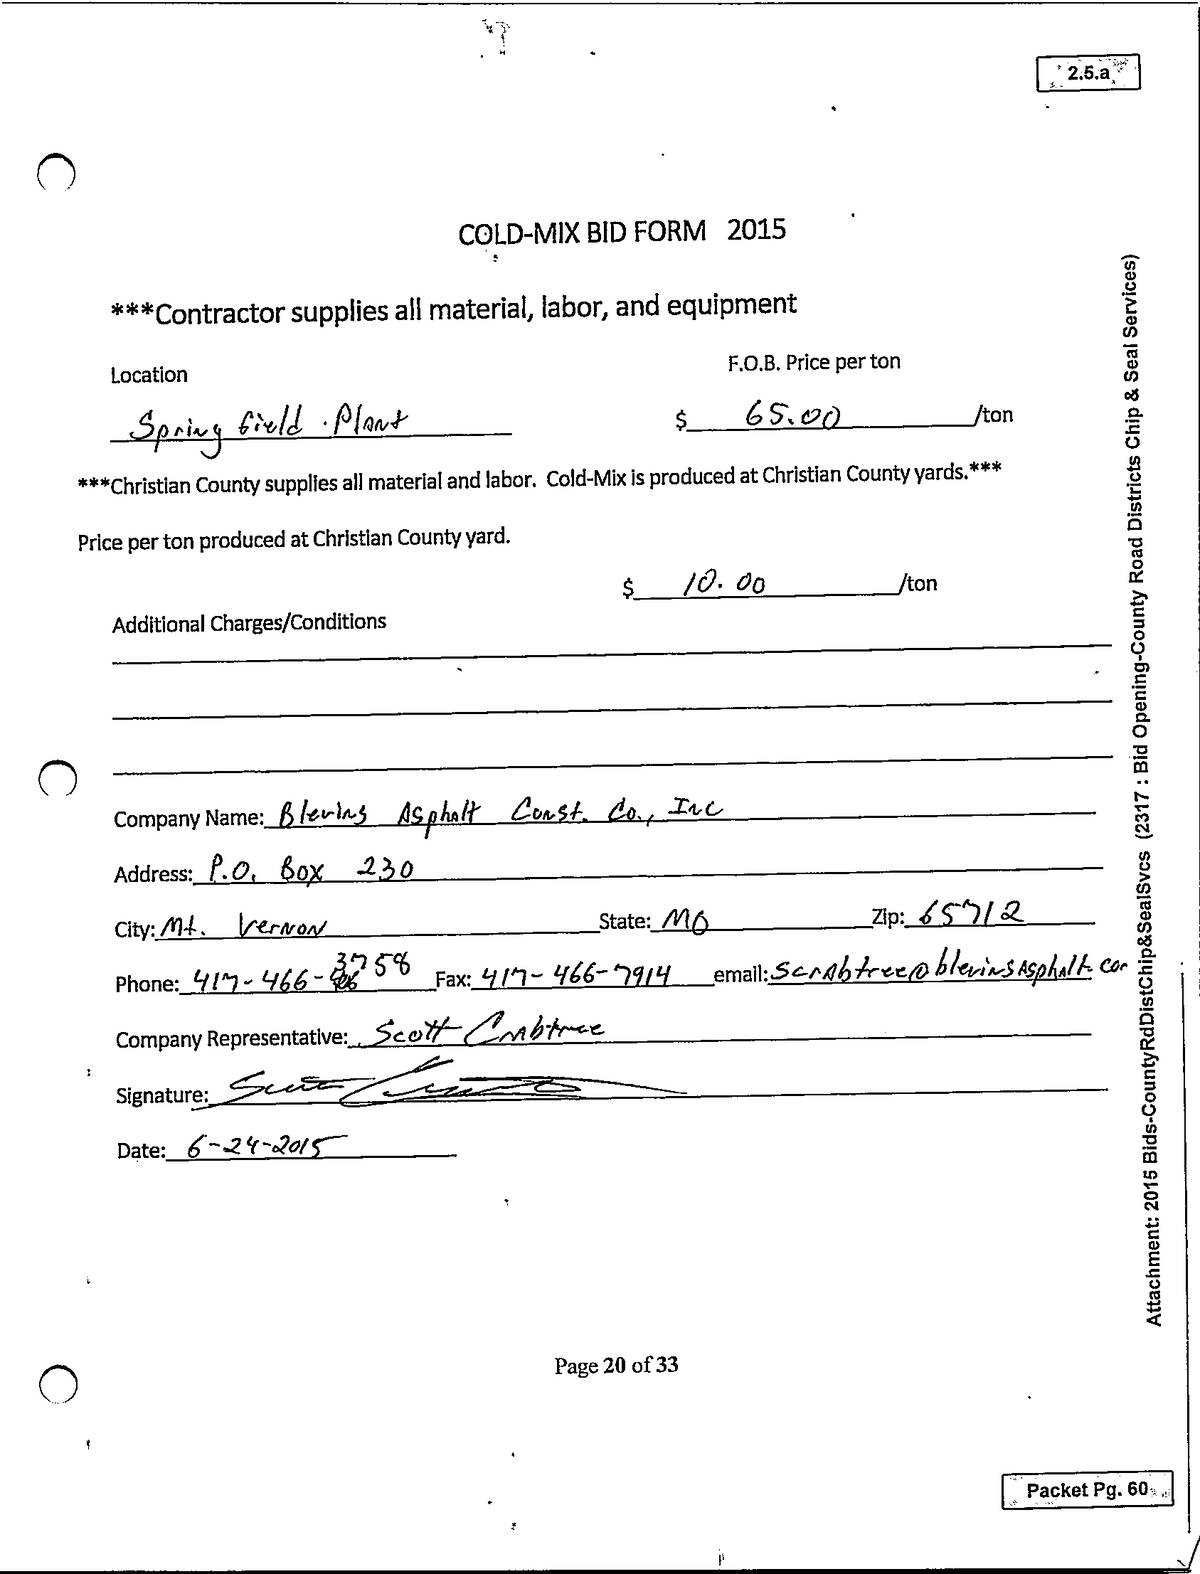 2.5.a
COLD-MIX BID FORM 2015
***Contractor supplies all material, labor, and equipment
Location
F.O.B. Price per ton
Springfield Plant
$ 65.00 /ton
***Christian County supplies all material and labor. Cold-Mix is produced at Christian County yards.***
Price per ton produced at Christian County yard.
$ 10.00 /ton
Additional Charges/Conditions
Company Name: Blevins Asphalt Const. Co., Inc
Address: P.O. Box 230
City: Mt. Vernon State: MO Zip: 65712
Phone: 417-466-3758 Fax: 417-466-7914 email: scrabtree@blevinsAsphalt.com
Company Representative: Scott Crabtree
Signature: Scott Crabtree
Date: 6-24-2015
Page 20 of 33
Packet Pg. 60
Attachment: 2015 Bids-CountyRdDistChip&SealSvcs (2317 : Bid Opening-County Road Districts Chip & Seal Services)